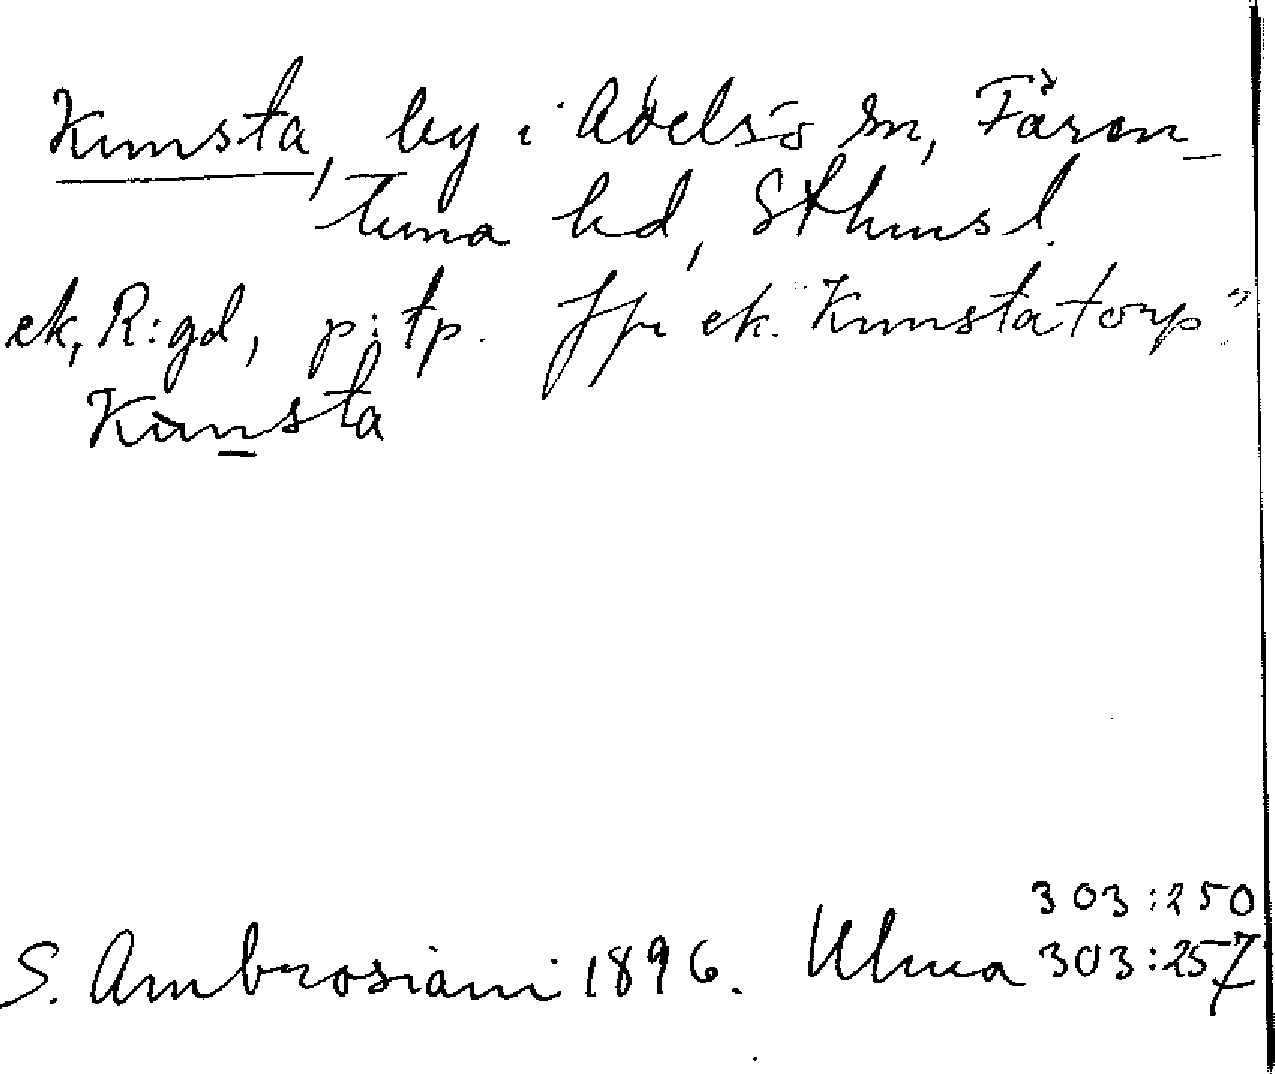 Kunsta, by i Adelsö sn, Fären-
tuna hd, Sthms l.
ek, R:gd, p:tp. Jfr ek. "Kunstatorp."
Kùnsta
303:250
S. Ambrosiani 1896. Ulma 303:257